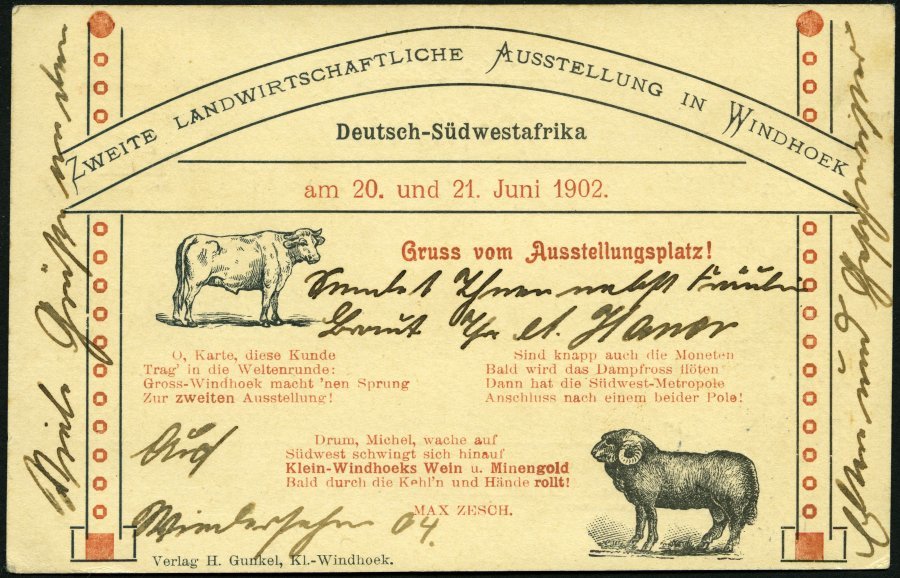 ZWEITE LANDWIRTSCHAFTLICHE AUSSTELLUNG IN WINDHOEK
Deutsch-Südwestafrika
am 20. und 21. Juni 1902.
Gruss vom Ausstellungsplatz!
Sendet Ihnen nebst Fräulein
Braut Ihr
O, Karte, diese Kunde
Trag' in die Weltenrunde:
Gross-Windhoek macht 'nen Sprung
Zur zweiten Ausstellung!
Sind knapp auch die Moneten
Bald wird das Dampfross flöten
Dann hat die Südwest-Metropole
Anschluss nach einem beider Pole!
Drum, Michel, wache auf
Südwest schwingt sich hinauf
Klein-Windhoeks Wein u. Minengold
Bald durch die Kehl'n und Hände rollt!
MAX ZESCH.
Auf
Wiedersehn 04.
Viele Grüße
Verlag H. Gunkel, Kl.-Windhoek.